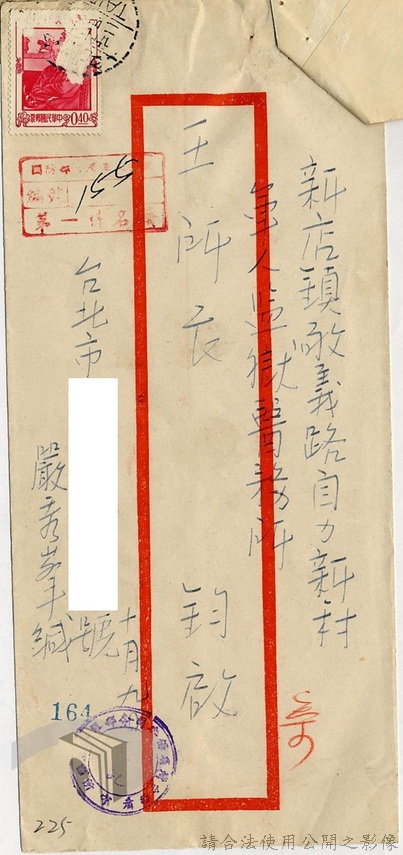 新店鎮敢義路自力新村
軍人監獄醫務所
王所長 鈞啟
台北市
號
嚴秀峯緘
十月九
中華民國郵票
0.40
551
164
225
請合法使用公開之影像